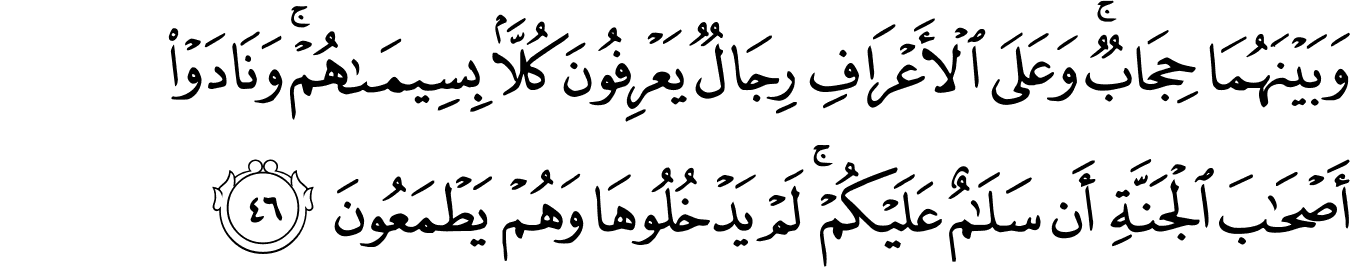 وَبَيْنَهُمَا حِجَابٌ ۚ وَعَلَى ٱلْأَعْرَافِ رِجَالٌ يَعْرِفُونَ كُلًّۢا بِسِيمَىٰهُمْ ۚ وَنَادَوْا۟
أَصْحَٰبَ ٱلْجَنَّةِ أَن سَلَٰمٌ عَلَيْكُمْ ۚ لَمْ يَدْخُلُوهَا وَهُمْ يَطْمَعُونَ ٤٦